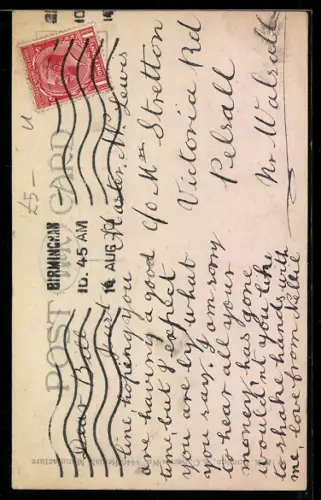 £5-
POST CARD
BIRMINGHAM
10.45 AM
14 AUG
Dear Bill
Just a
line hoping you
are having a good
time, but I expect
you are by what
you say. I am sorry
to hear all your
money has gone
wouldn't you like
to shake hands with
me love from Nellie
Master W. Lewis
c/o Mrs Stretton
Victoria Rd
Pelsall
Nr Walsall